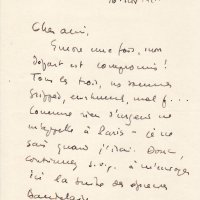 Cher ami,
Encore une fois, mon
départ est compromis !
Tous les trois, nous sommes
grippés, enrhumés, mal f...
Comme rien d'urgent ne
m'appelle à Paris - je ne
sais quand j'irai. Donc,
continuez s.v.p. à m'envoyer
ici la suite des épreuves